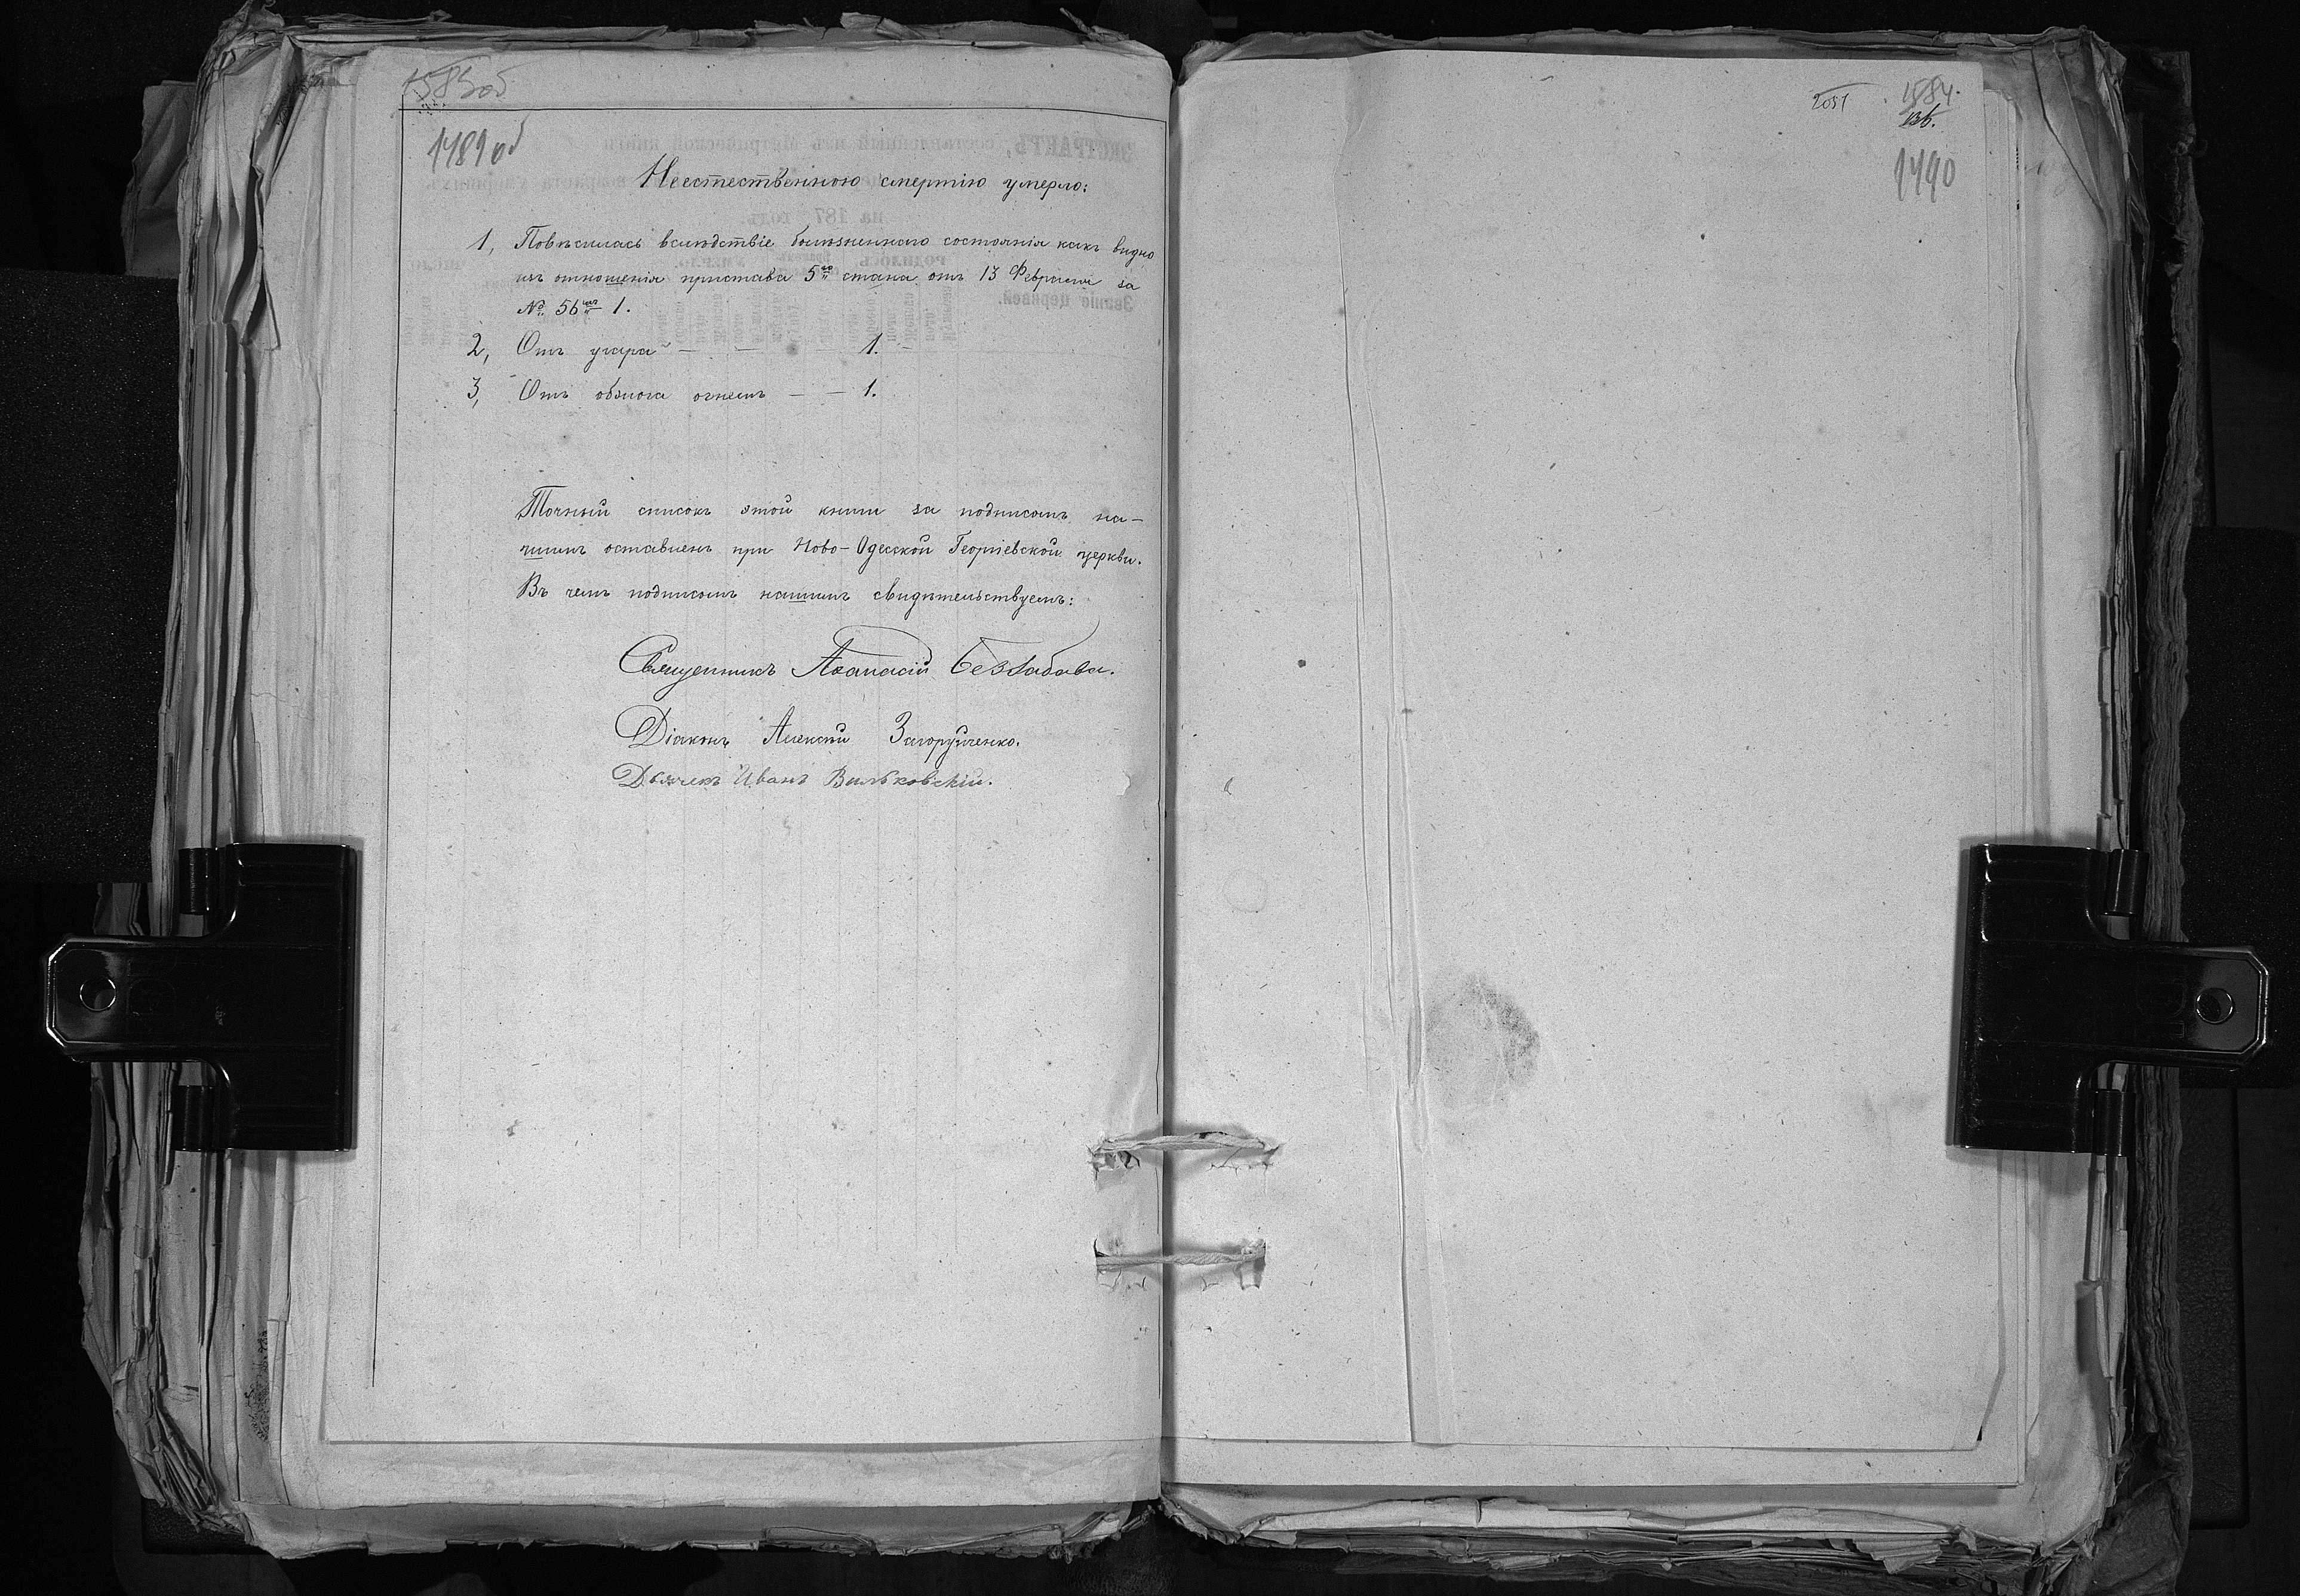 1583об
1489об
Неестественною смертію умерло:
1, Повѣсилась вслѣдствіе болѣзненнаго состоянія какъ видно
изъ отношенія пристава 5го стана отъ 13 Февраля за
№ 56мъ 1.
2, Отъ угара — — — 1. —
3, Отъ обжога огнемъ — — 1.
Точный списокъ этой книги за подписомъ на-
шимъ оставленъ при Ново-Одесской Георгіевской церкви.
Въ чемъ подписомъ нашимъ свидѣтельствуемъ:
Священникъ Аѳанасій Беззабава.
Діаконъ Алексій Загоруйченко.
Дьячекъ Иванъ Вильковскій.
2051
1584.
1490